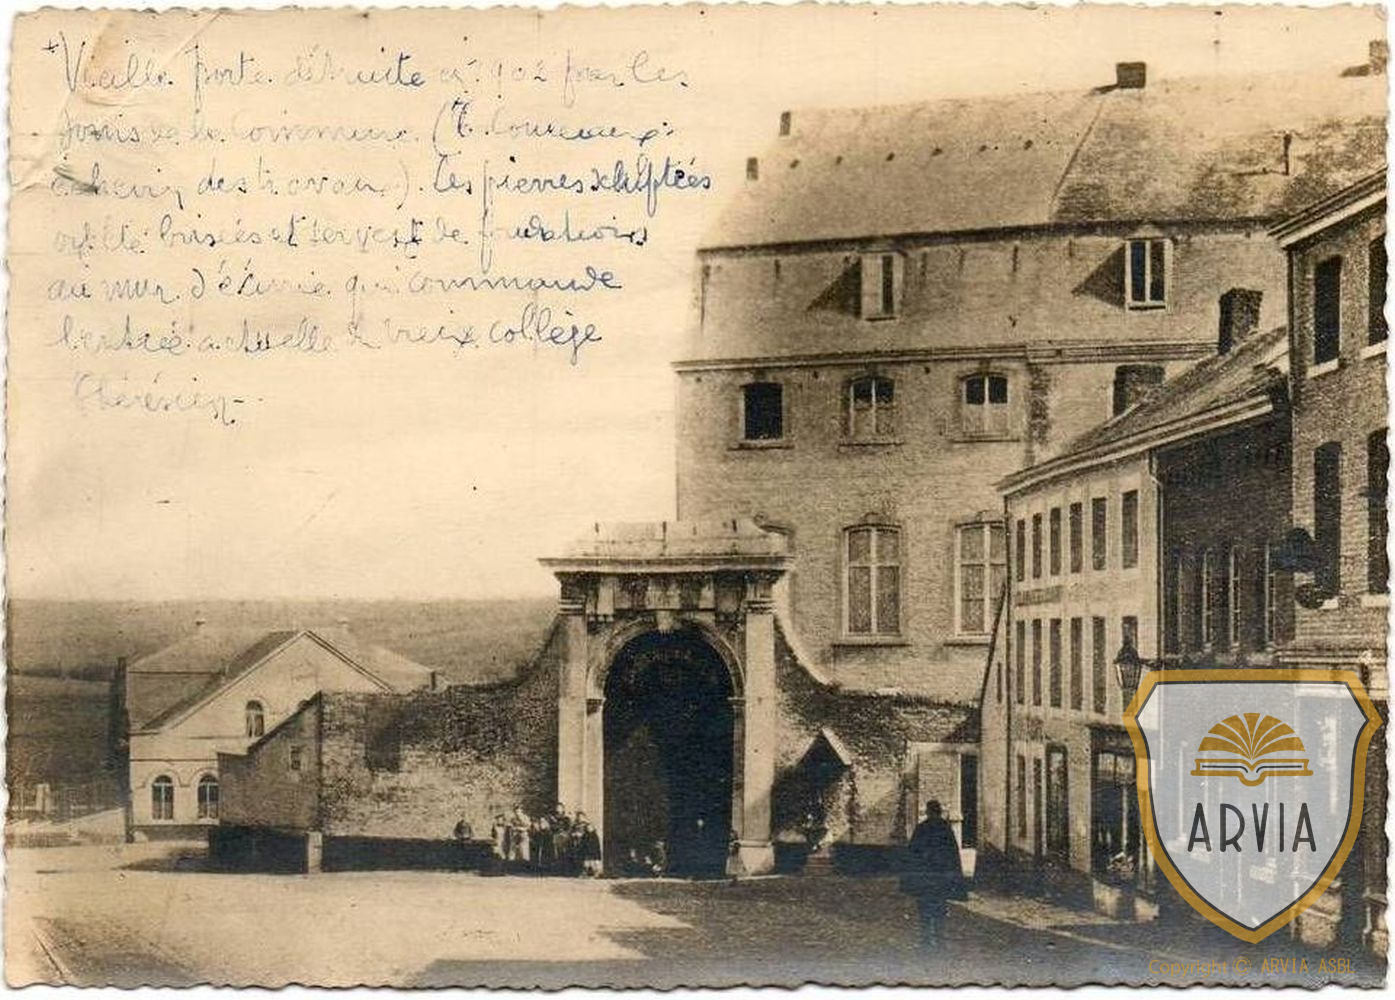 Vieille porte détruite en 1902 par les
soins de la Commune. (E. Couveaux
échevin des travaux). Les pierres sculptées
ont été brisées et servent de fondations
au mur d'écurie qui commande
l'entrée actuelle du vieux collège
thérésien.
ARVIA
Copyright © ARVIA ASBL